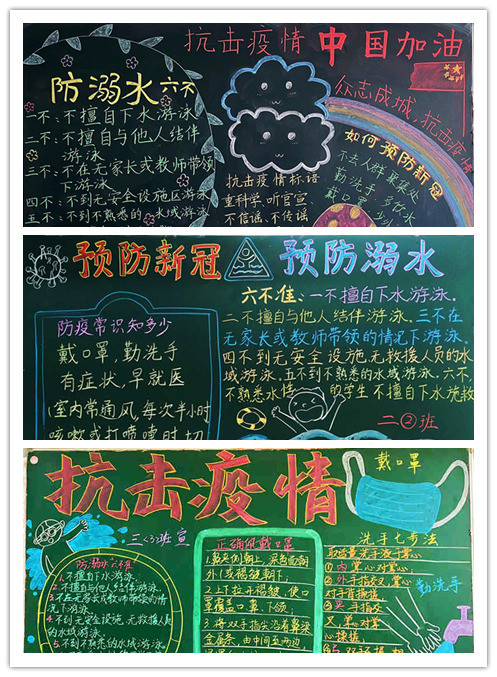 抗击疫情 中国加油
防溺水六不
一不：不擅自下水游泳
二不：不擅自与他人结伴
游泳
三不：不在无家长或教师带领
下游泳
四不：不到无安全设施区游泳
五不：不到不熟悉的水域游泳
抗击疫情标语
重科学、听官宣、
不信谣、不传谣
众志成城，抗击疫情
如何预防新冠
不去人群聚集处
勤洗手，多饮水
戴口罩
预防新冠
预防溺水
防疫常识知多少
戴口罩，勤洗手
有症状，早就医
室内常通风，每次半小时
咳嗽或打喷嚏时切
六不准：一不擅自下水游泳。
二不擅自与他人结伴游泳。三不在
无家长或教师带领的情况下游泳。
四不到无安全设施无救援人员的水
域游泳。五不到不熟悉的水域游泳。六不，
不熟悉水性的学生不擅自下水施救
二②班
抗击疫情
戴口罩
三<3>班宣
防溺水六不准
1.不擅自下水游泳。
2.不擅自与他人结伴游泳。
3.不在无家长或教师带领的情
况下游泳。
4.不到无安全设施、无救援人员
的水域游泳。
5.不到不熟悉的水域游泳。
正确佩戴口罩
1.鼻夹侧朝上，深色面朝
外（或褶皱朝下）
2.上下拉开褶皱，使口
罩覆盖口、鼻、下颌；
3.将双手指尖沿着鼻梁
金属条，由中间至两边，
洗手七步法
取适量洗手液于掌心
①内 掌心对掌心
②外 手指交叉，掌心
对手背揉搓
③夹 手指交
叉，掌心对掌
心揉搓
勤洗手